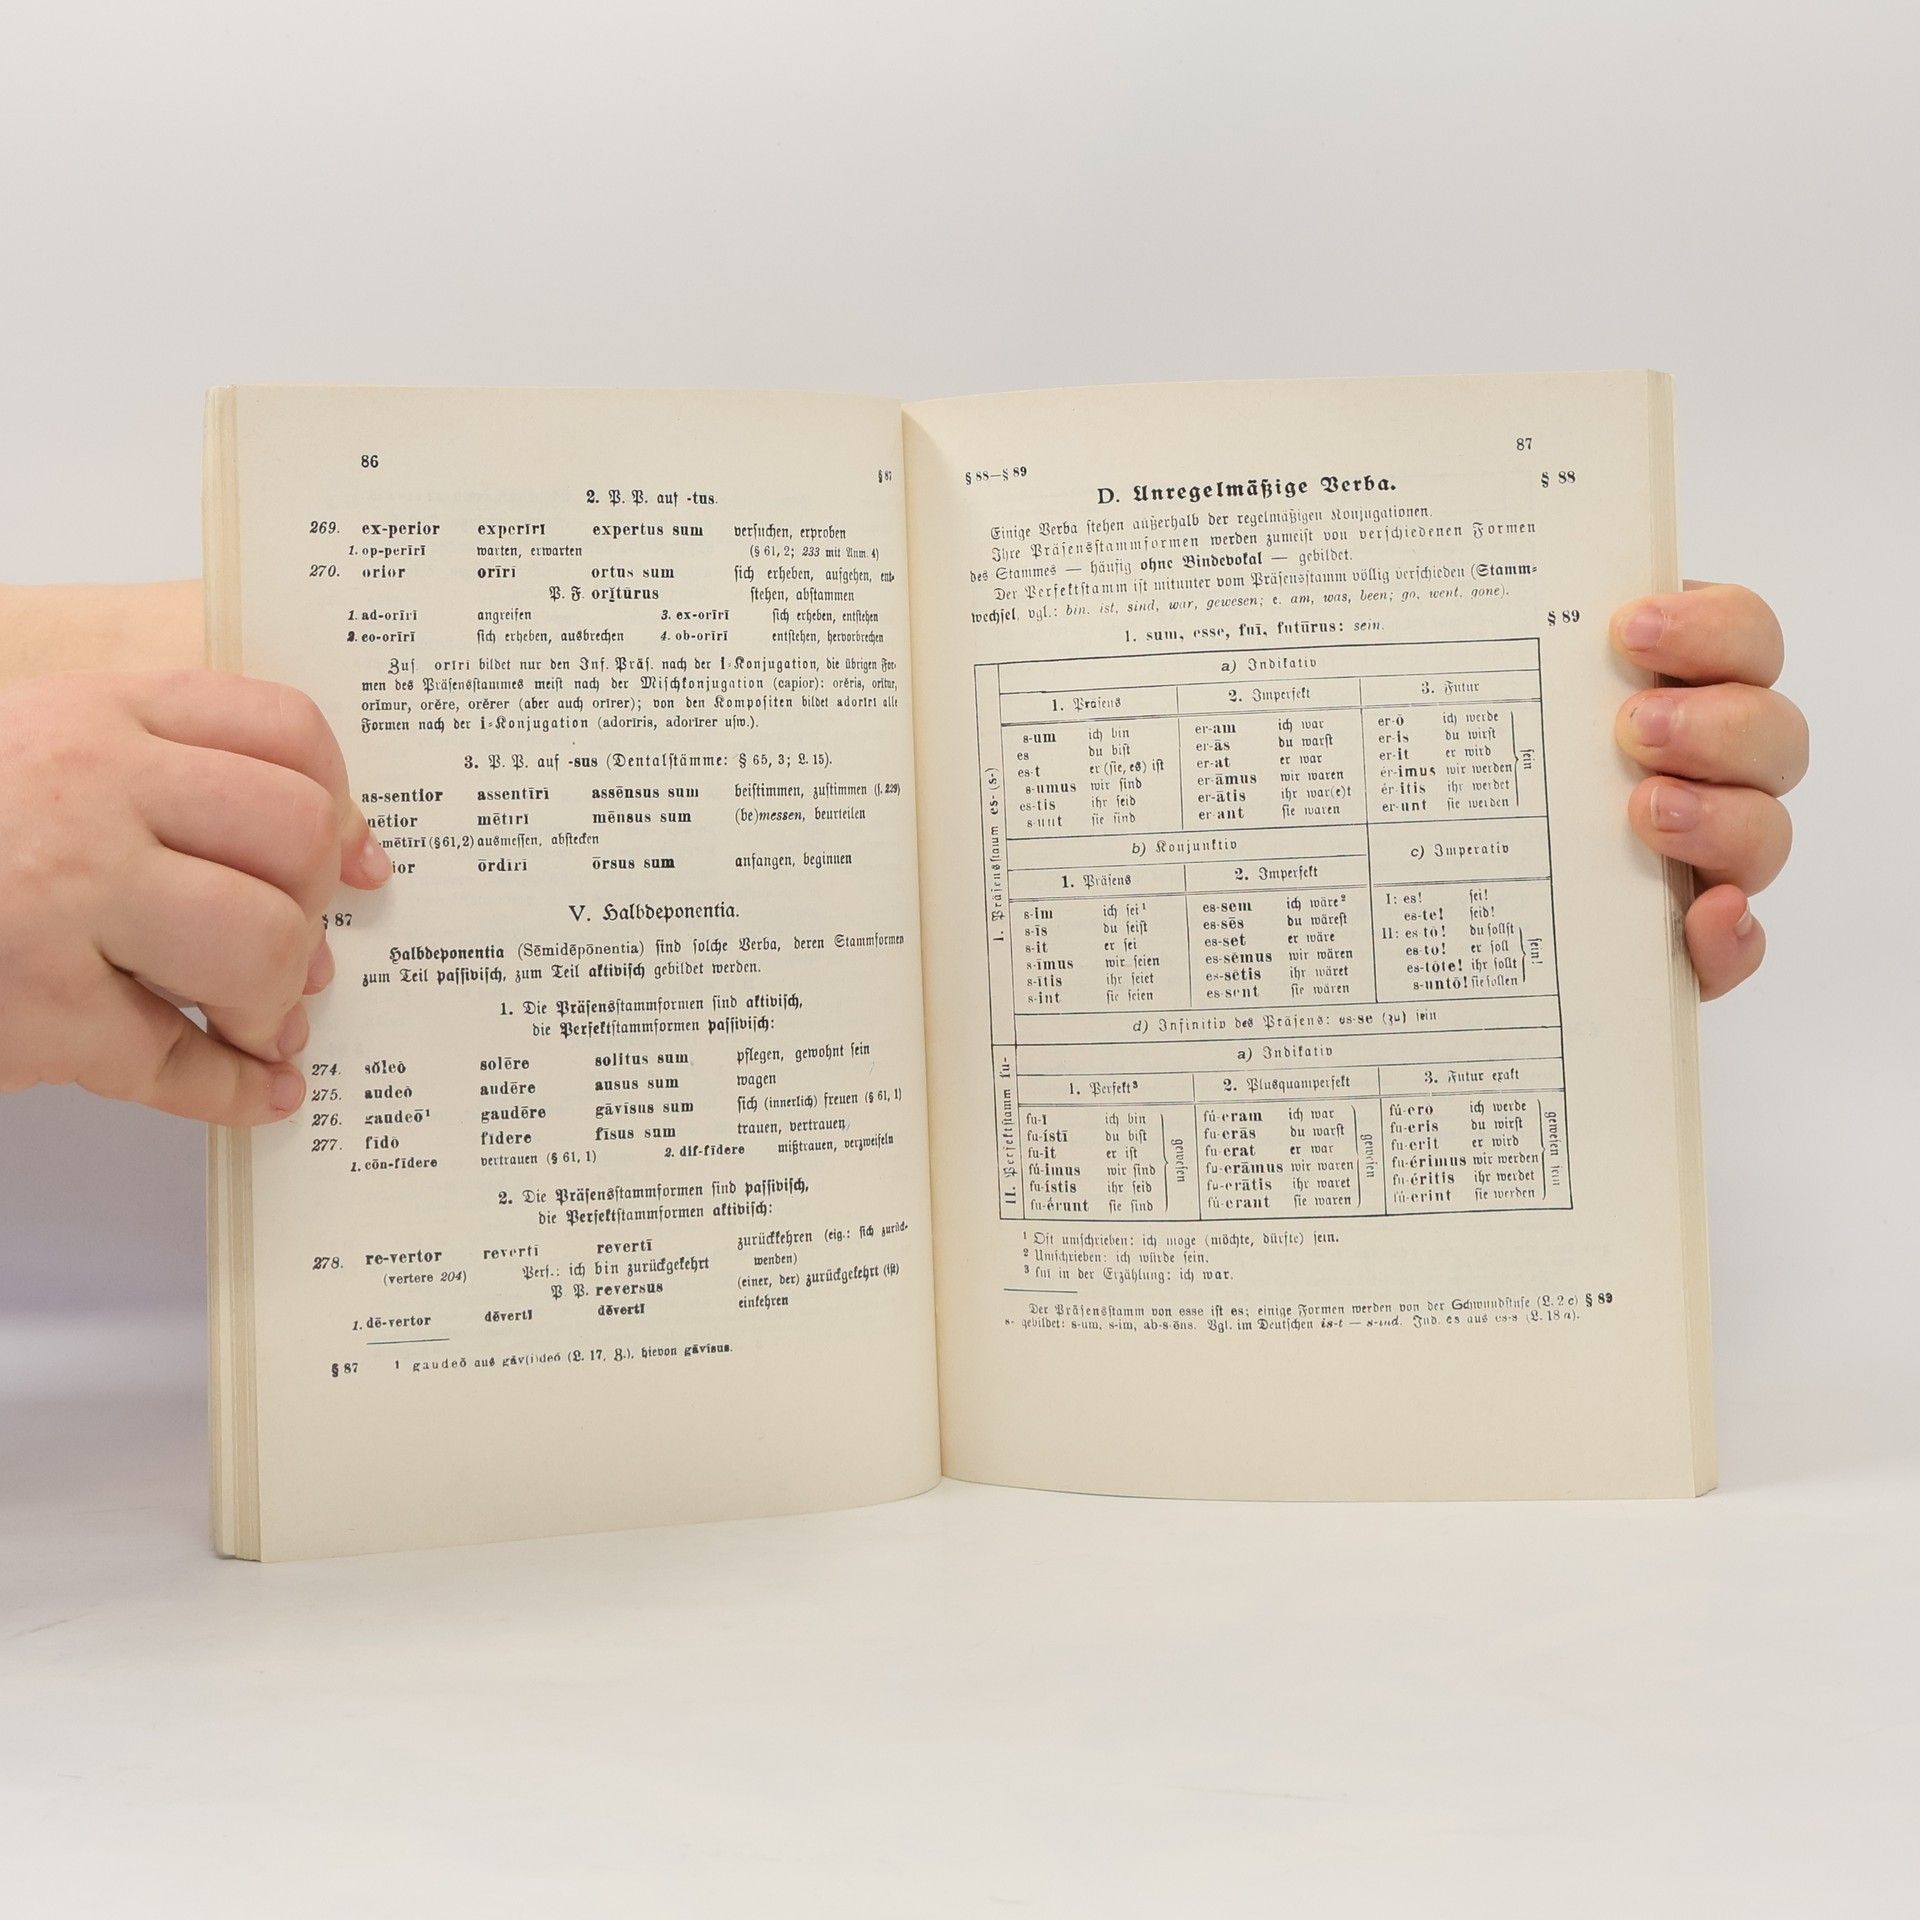 86
§ 87
2. P. P. auf -tus.
269. ex-perior experīrī expertus sum verſuchen, erproben
1. op-perīrī warten, erwarten (§ 61, 2; 233 mit Anm. 4)
270. orior orīrī ortus sum ſich erheben, aufgehen, ent-
P. F. orĭtūrus ſtehen, abſtammen
1. ad-orīrī angreifen 3. ex-orīrī ſich erheben, entſtehen
2. co-orīrī ſich erheben, ausbrechen 4. ob-orīrī entſtehen, hervorbrechen
Zuſ. orīrī bildet nur den Inf. Präſ. nach der i-Konjugation, die übrigen For-
men des Präſensſtammes meiſt nach der Miſchkonjugation (capior): orĕris, orĭtur,
orĭmur, orĕre, orĕrer (aber auch orīrer); von den Kompoſiten bildet adorīrī alle
Formen nach der i-Konjugation (adorīris, adorīrer uſw.).
3. P. P. auf -sus (Dentalſtämme: § 65, 3; L. 15).
as-sentior assentīrī assēnsus sum beiſtimmen, zuſtimmen (ſ. 229)
mētior mētīrī mēnsus sum (be)messen, beurteilen
-mētīrī (§ 61, 2) ausmeſſen, abſtecken
ior ōrdīrī ōrsus sum anfangen, beginnen
§ 87
V. Halbdeponentia.
Halbdeponentia (Sēmidēpōnentia) ſind ſolche Verba, deren Stammformen
zum Teil paſſiviſch, zum Teil aktiviſch gebildet werden.
1. Die Präſensſtammformen ſind aktiviſch,
die Perfektſtammformen paſſiviſch:
274. sŏleō solēre solitus sum pflegen, gewohnt ſein
275. audeō audēre ausus sum wagen
276. gaudeō¹ gaudēre gāvīsus sum ſich (innerlich) freuen (§ 61, 1)
277. fīdō fīdere fīsus sum trauen, vertrauen
1. cōn-fīdere vertrauen (§ 61, 1) 2. dif-fīdere mißtrauen, verzweifeln
2. Die Präſensſtammformen ſind paſſiviſch,
die Perfektſtammformen aktiviſch:
278. re-vertor revertī revertī zurückkehren (eig.: ſich zurück-
(vertere 204) Perf.: ich bin zurückgekehrt wenden)
P. P. reversus (einer, der) zurückgekehrt (iſt)
1. dē-vertor dēvertī dēvertī einkehren
§ 87 1 gaudeō aus gāv(i)deō (L. 17, Z.), hievon gāvīsus.
87
§ 88—§ 89
D. Unregelmäßige Verba.
§ 88
Einige Verba ſtehen außerhalb der regelmäßigen Konjugationen.
Ihre Präſensſtammformen werden zumeiſt von verſchiedenen Formen
des Stammes — häufig ohne Bindevokal — gebildet.
Der Perfektſtamm iſt mitunter vom Präſensſtamm völlig verſchieden (Stamm-
wechſel, vgl.: bin, ist, sind, war, gewesen; e. am, was, been; go, went, gone).
§ 89
1. sum, esse, fuī, futūrus: sein.
I. Präſensſtamm es- (s-)
a) Indikativ
1. Präſens 2. Imperfekt 3. Futur
s-um ich bin er-am ich war er-ō ich werde
es du biſt er-ās du warſt er-is du wirſt
es-t er (ſie, es) iſt er-at er war er-it er wird
s-umus wir ſind er-āmus wir waren ér-imus wir werden
es-tis ihr ſeid er-ātis ihr war(e)t ér-itis ihr werdet
s-unt ſie ſind er-ant ſie waren er-unt ſie werden
ſein
b) Konjunktiv c) Imperativ
1. Präſens 2. Imperfekt
s-im ich ſei¹ es-sem ich wäre² I: es! ſei!
s-īs du ſeiſt es-sēs du wäreſt es-te! ſeid!
s-it er ſei es-set er wäre II: es-tō! du ſollſt
s-īmus wir ſeien es-sēmus wir wären es-tō! er ſoll
s-ītis ihr ſeiet es-sētis ihr wäret es-tōte! ihr ſollt
s-int ſie ſeien es-sent ſie wären s-untō! ſie ſollen
ſein!
d) Infinitiv des Präſens: es-se (zu) ſein
II. Perfektſtamm fu-
a) Indikativ
1. Perfekt³ 2. Plusquamperfekt 3. Futur exakt
fu-ī ich bin fú-eram ich war fú-erō ich werde
fu-ístī du biſt fu-erās du warſt fu-eris du wirſt
fu-it er iſt fu-erat er war fu-erit er wird
fú-imus wir ſind fu-erāmus wir waren fu-érimus wir werden
fu-ístis ihr ſeid fu-erātis ihr waret fu-éritis ihr werdet
fu-érunt ſie ſind fú-erant ſie waren fú-erint ſie werden
geweſen geweſen geweſen ſein
¹ Oft umſchrieben: ich möge (möchte, dürfte) ſein.
² Umſchrieben: ich würde ſein.
³ fuī in der Erzählung: ich war.
Der Präſensſtamm von esse iſt es; einige Formen werden von der Schwundſtufe (L. 2 c) § 89
s- gebildet: s-um, s-im, ab-s-ēns. Vgl. im Deutſchen is-t — s-ind. Ind. es aus es-s (L. 18 a).